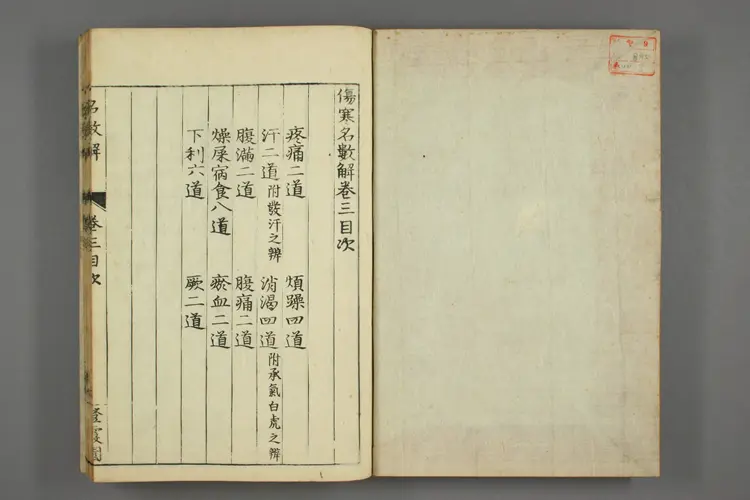 傷寒名數解卷三目次
疼痛二道 煩躁四道
汗二道附發汗之辨 消渴四道附承氣白虎之辨
腹滿二道 腹痛二道
燥屎宿食八道 瘀血二道
下利六道 厥二道
名數解 卷三目次